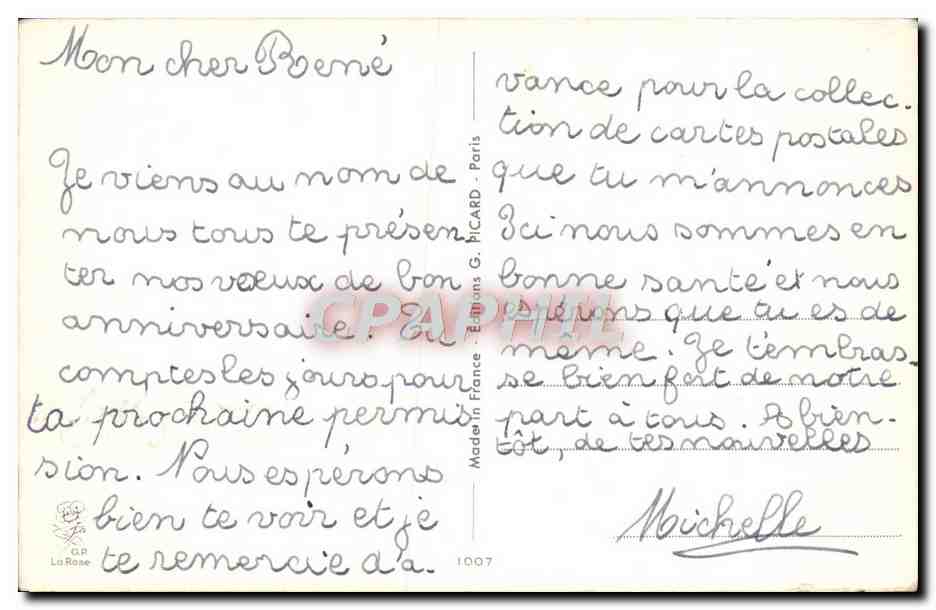 Mon cher René
Je viens au nom de
nous tous te présen
ter nos vœux de bon
anniversaire. Tu
comptes les jours pour
ta prochaine permis
sion. Nous espérons
bien te voir et je
te remercie d'a.
vance pour la collec.
tion de cartes postales
que tu m'annonces
Ici nous sommes en
bonne santé et nous
espérons que tu es de
même. Je t'embras-
se bien fort de notre
part à tous. A bien-
tôt, de tes nouvelles
Michelle
Made in France - Editions G. PICARD - Paris
G.P.
La Rose
1007
CPAPHIL